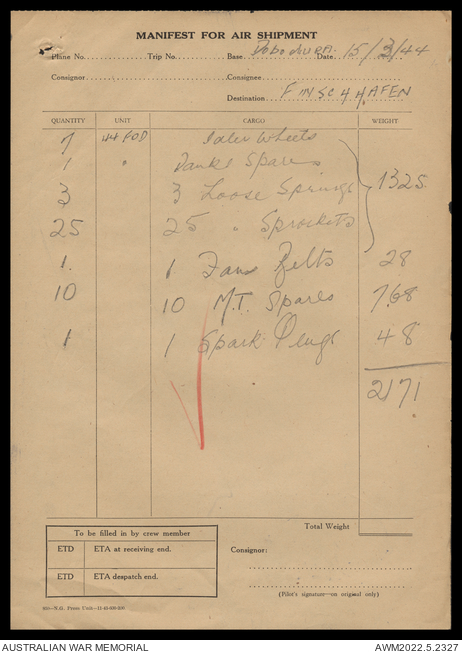 MANIFEST FOR AIR SHIPMENT
Plane No. Trip No. Base Dobodura Date 15/3/44
Consignor Consignee
Destination FINSCHHAFEN
QUANTITY UNIT CARGO WEIGHT
7 44 FOD Idler Wheels
1 " Tank Spares
3 3 Loose Springs 1325
25 25 " Sprockets
1 1 Fans Belts 28
10 10 M.T. Spares 768
1 1 Spark Plugs 48
2171
Total Weight
To be filled in by crew member
ETD ETA at receiving end.
Consignor:
ETD ETA despatch end.
(Pilot's signature—on original only)
N.G. Press Unit
AUSTRALIAN WAR MEMORIAL AWM2022.5.2327